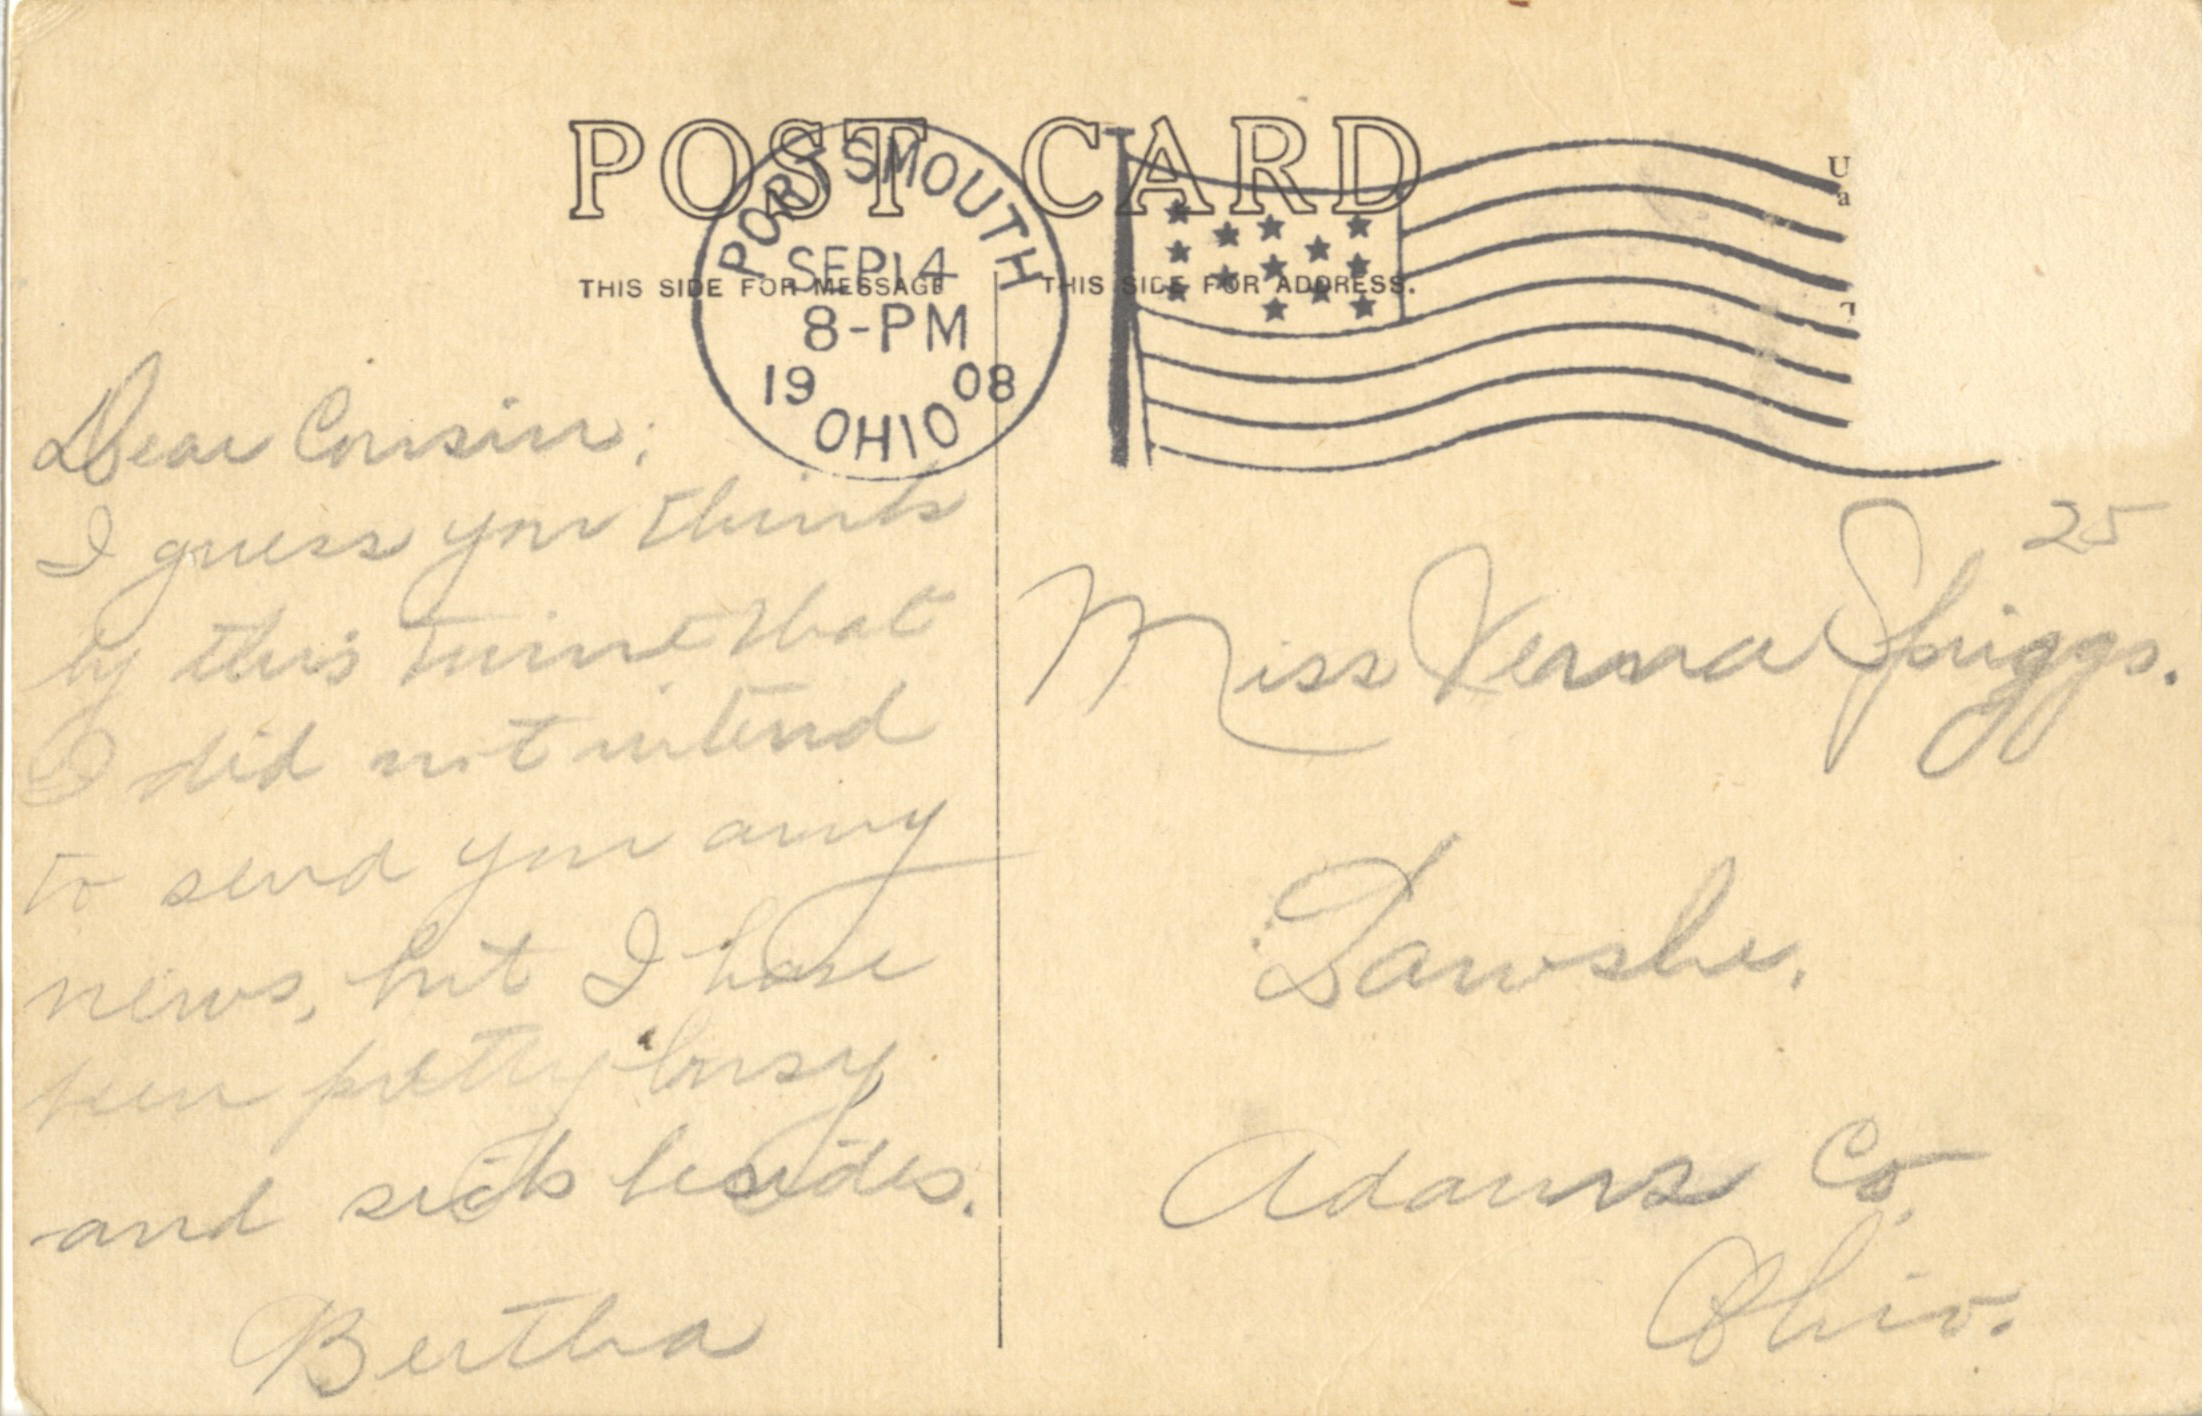 POST CARD
PORTSMOUTH
SEP 14
8-PM
1908
OHIO
THIS SIDE FOR MESSAGE
THIS SIDE FOR ADDRESS.
U
a
Dear Cousin;
I guess you think
by this time that
I did not intend
to send you any
news, but I have
been pretty busy
and sick besides.
Bertha
25
Miss Verna Spriggs.
Adams Co.
Ohio.